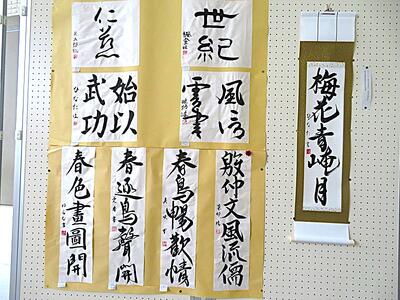 梅花青崦月
世紀
仁慈
風信
雲書
始以
武功
殷仲文風流儒
春鳥暢歡情
春逐鳥聲開
春色畫圖開